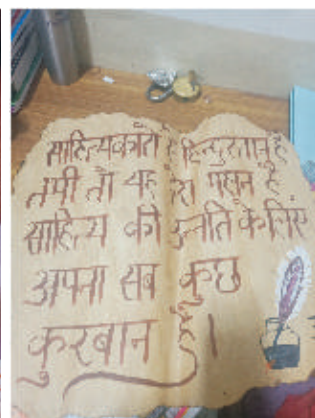 साहित्यकारों से हिन्दुस्तान है
तभी तो यह देश महान है
साहित्य की उन्नति के लिए
अपना सब कुछ
कुरबान है।